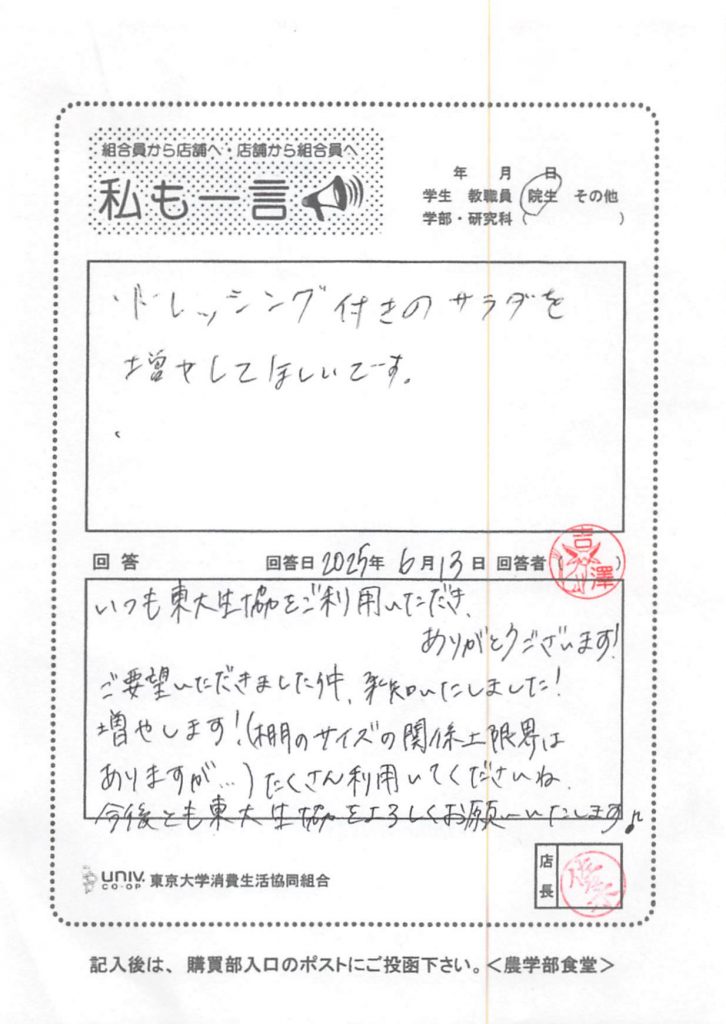 組合員から店舗へ・店舗から組合員へ
私も一言
年 月 日
学生 教職員 院生 その他
学部・研究科( )
ドレッシング付きのサラダを
増やしてほしいです。
回答 回答日 2025年 6月 13日 回答者( )
吉澤
いつも東大生協をご利用いただき、
ありがとうございます!
ご要望いただきました件、承知いたしました!
増やします!(棚のサイズの関係上限界は
ありますが…)たくさん利用してくださいね。
今後とも東大生協をよろしくお願いいたします♪
UNIV. CO-OP 東京大学消費生活協同組合
店長
記入後は、購買部入口のポストにご投函下さい。<農学部食堂>